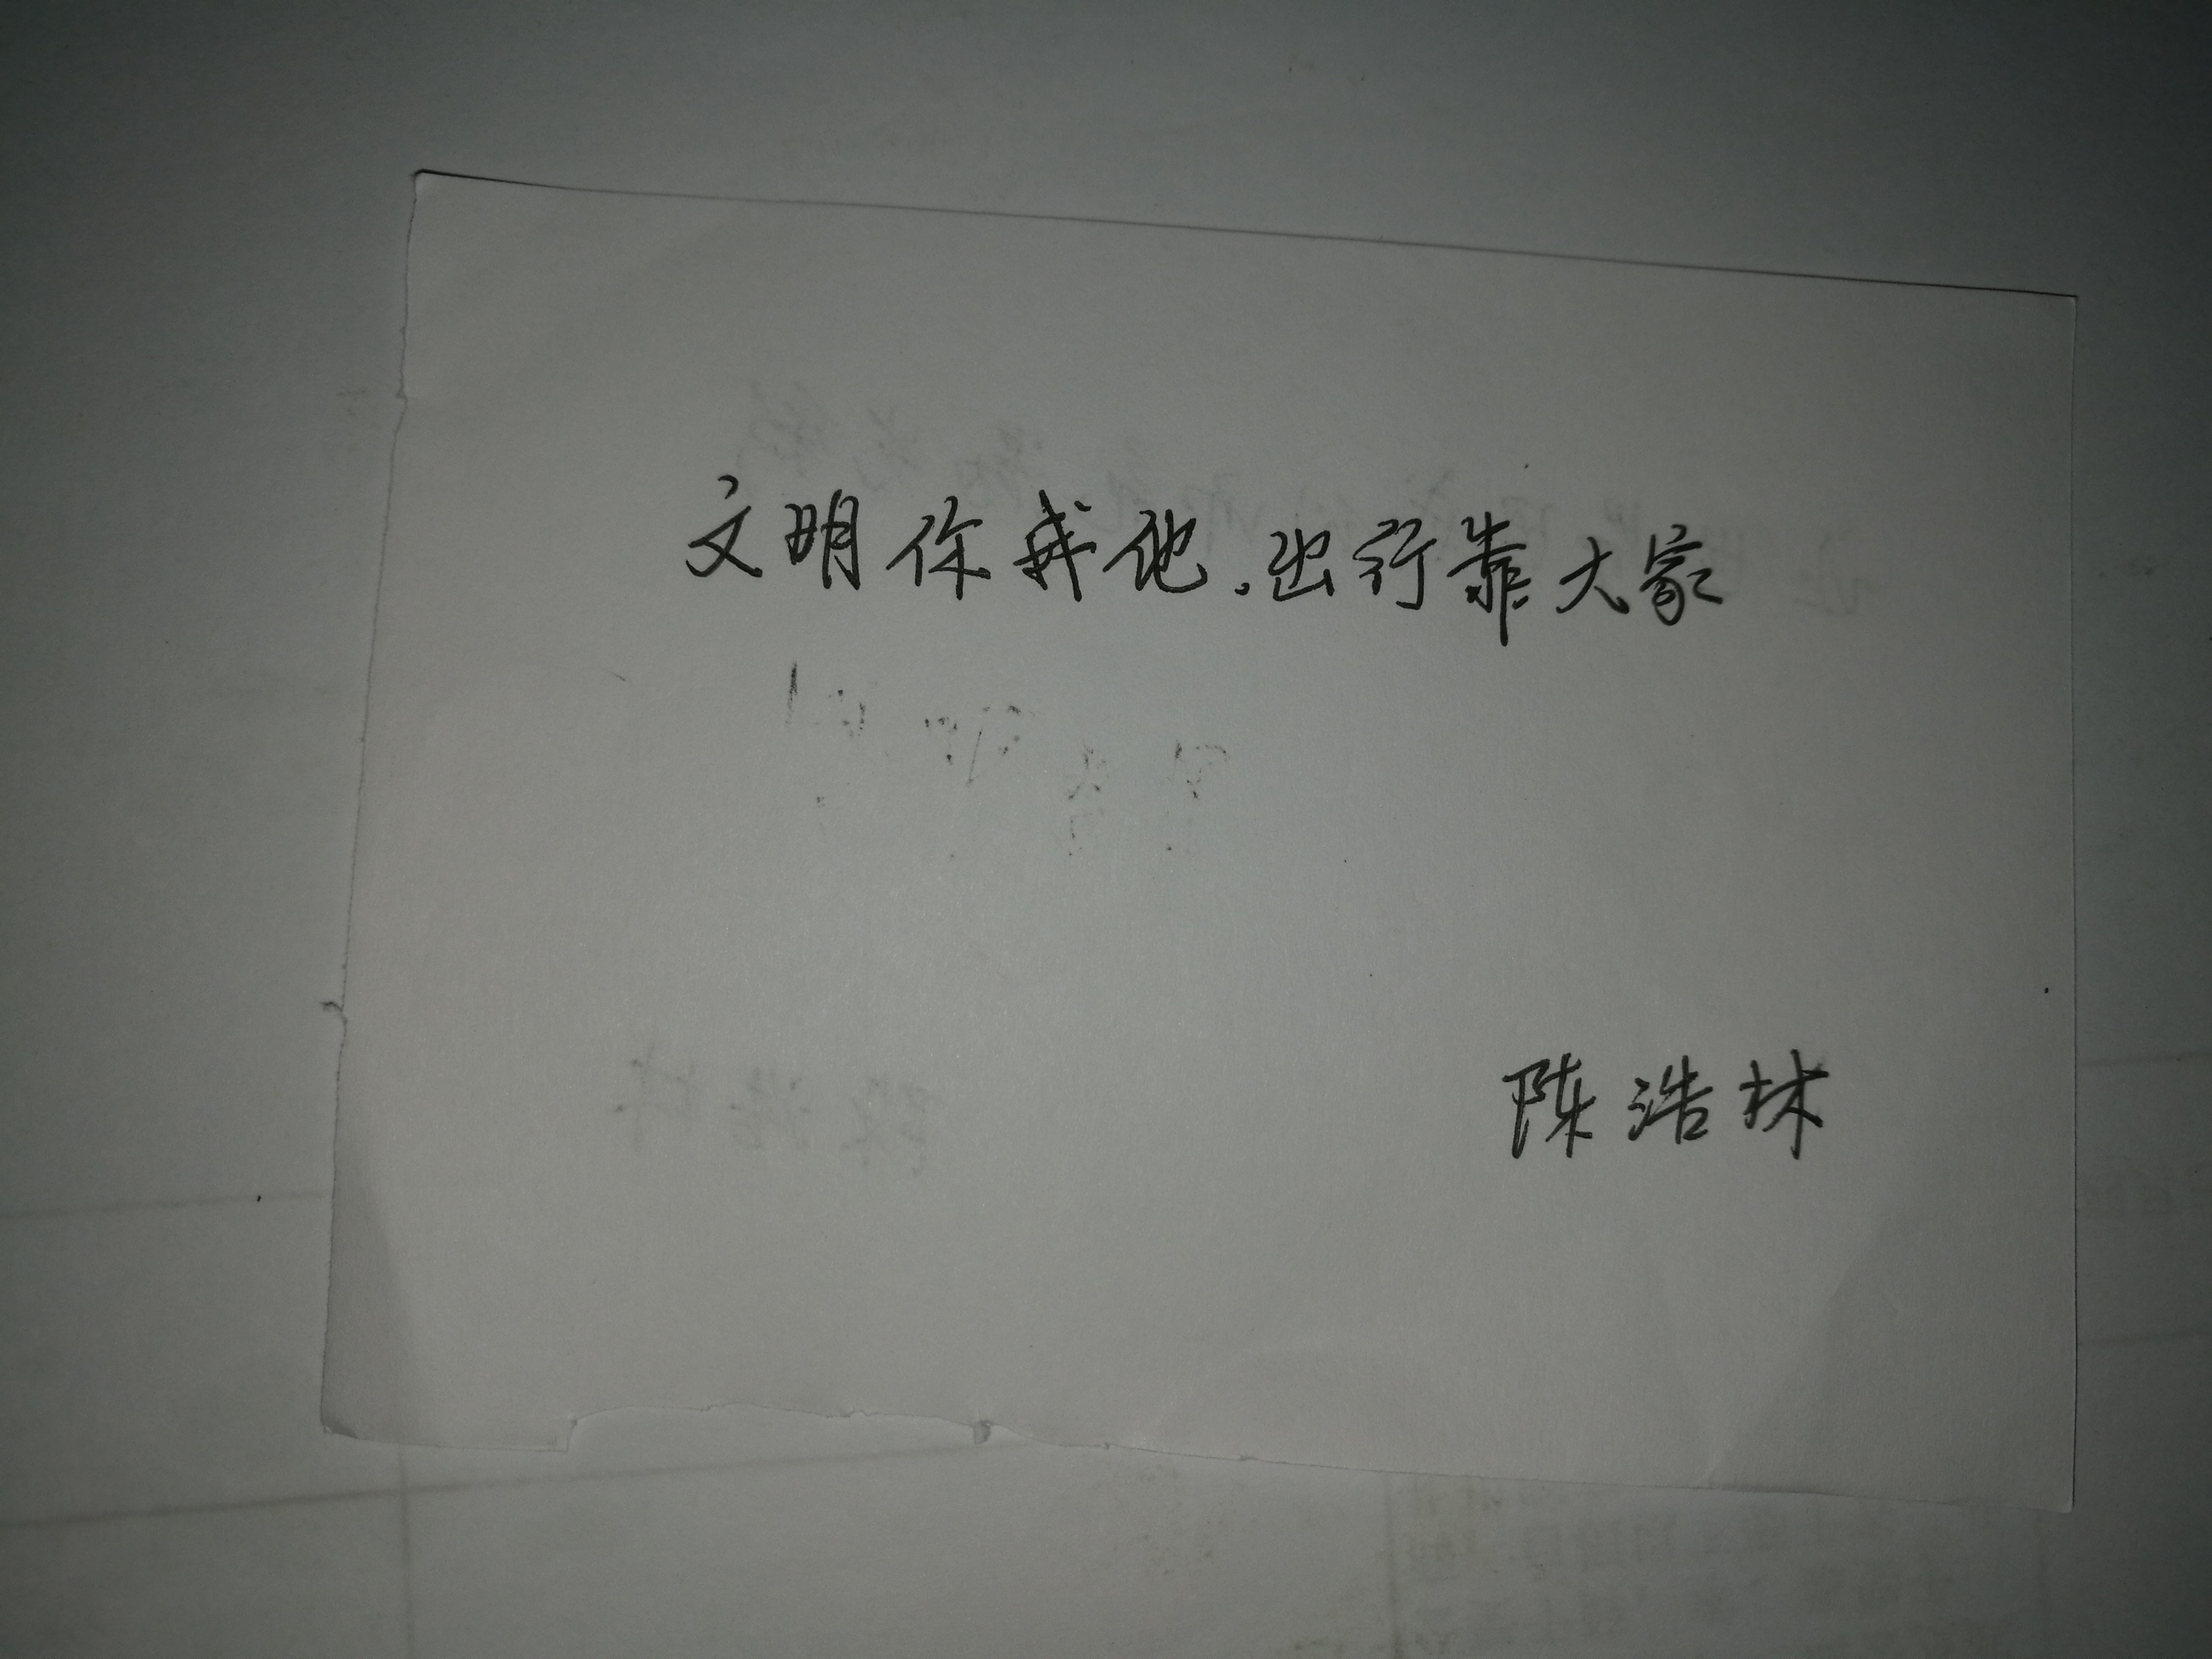 文明你我他,出行靠大家
陈浩林